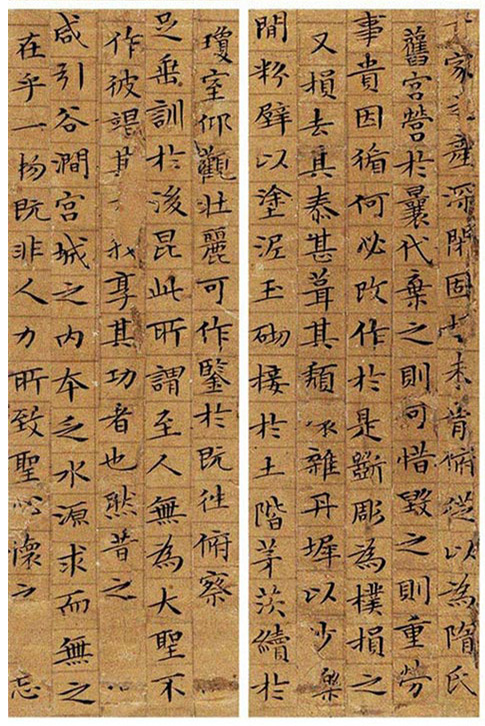 家產深閉固未肯俯從以為隋氏
舊宮營於曩代棄之則可惜毀之則重勞
事貴因循何必改作於是斲彫為樸損之
又損去其泰甚葺其頹雜丹墀以
間粉壁以塗泥玉砌接於土階茅茨續於
瓊室仰觀壯麗可作鑒於既往俯察
足垂訓於後昆此所謂至人無為大聖不
作彼竭其我享其功者也然昔之
咸引谷澗宮城之內本乏水源求而無之
在乎一物既非人力所致聖心懷之忘